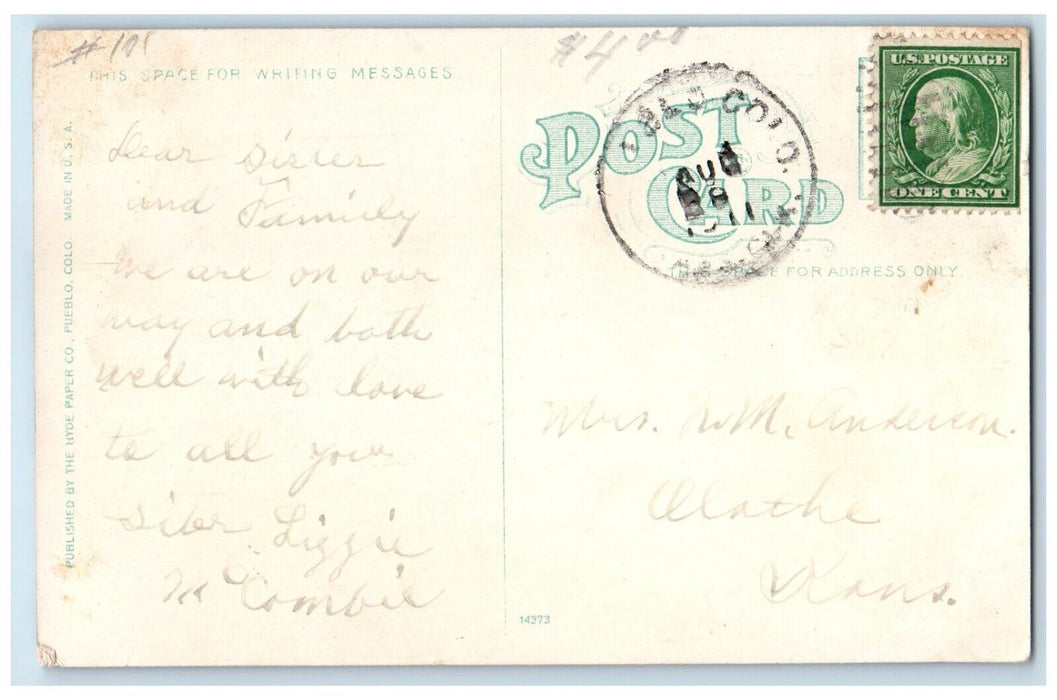 # 101
THIS SPACE FOR WRITING MESSAGES
Dear Sister
and Family
We are on our
way and both
well with love
to all your
Siter Lizzie
McCombie
PUBLISHED BY THE HYDE PAPER CO., PUEBLO, COLO. MADE IN U. S. A.
14373
$4.00
POST CARD
COLO.
AUG
28
1911
U.S. POSTAGE
ONE CENT
THIS SPACE FOR ADDRESS ONLY
Mrs. N. M. Anderson.
Olathe
Kans.